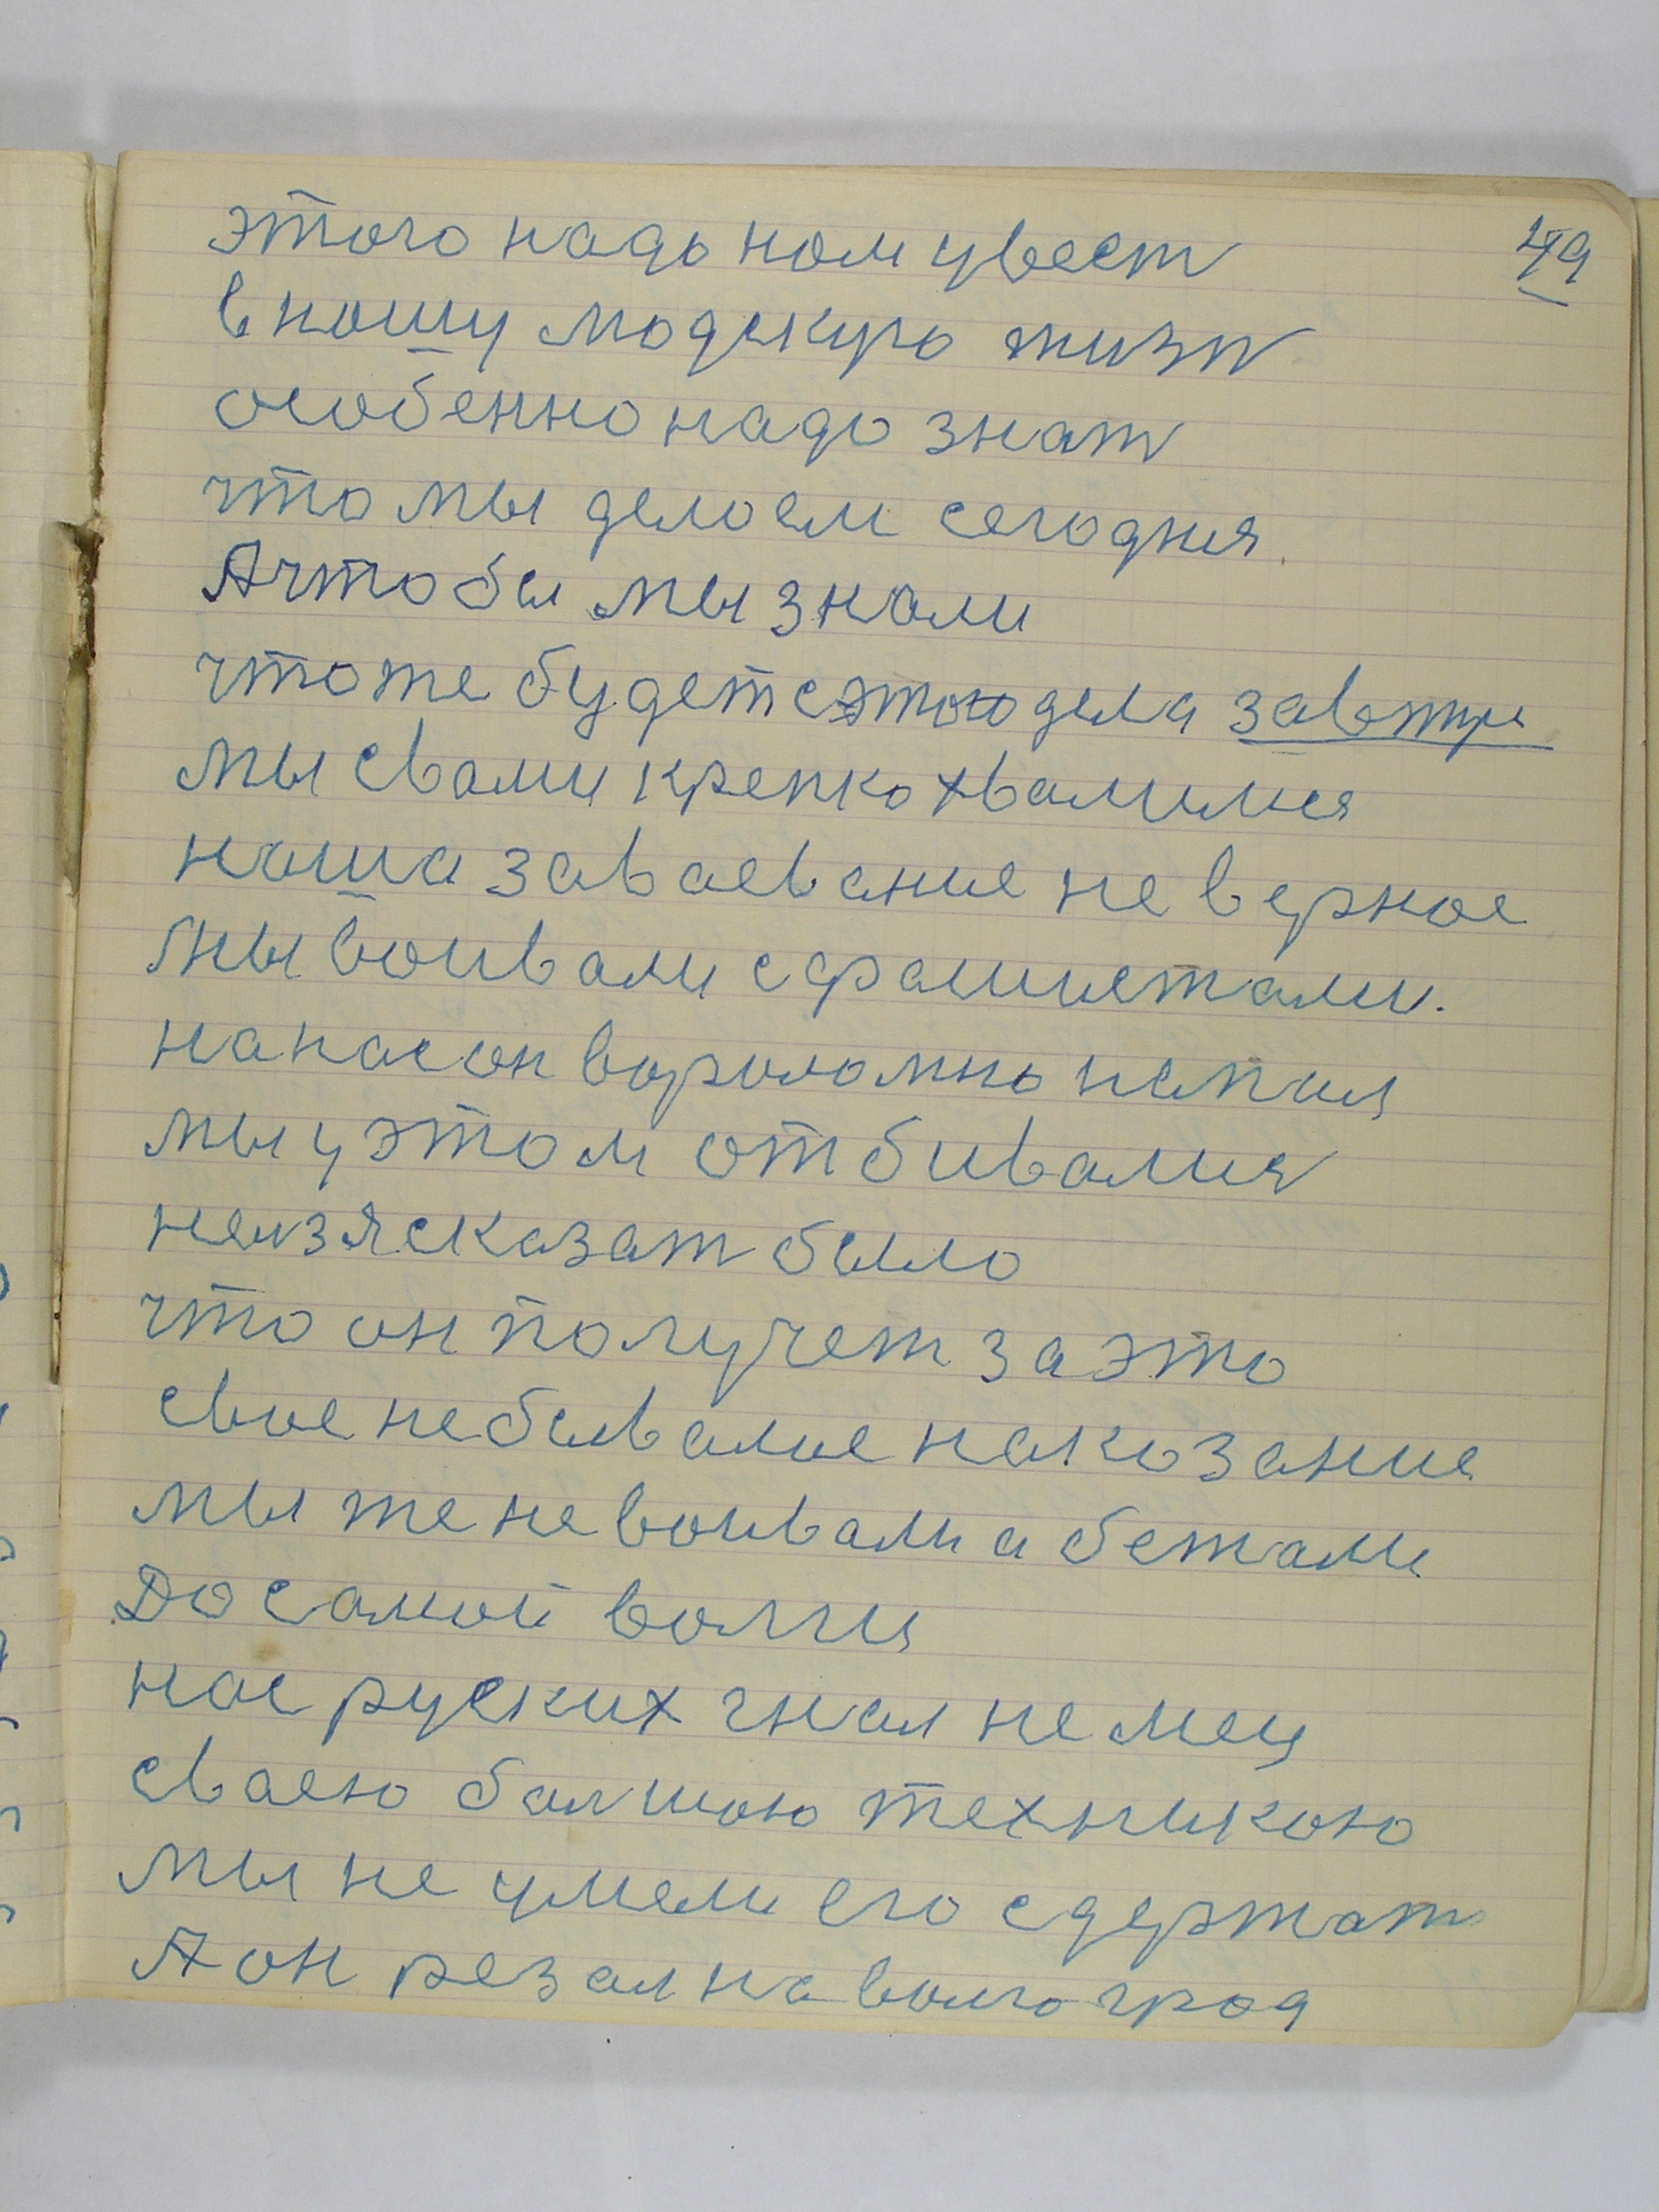 49
этого надо нам увест
в нашу людскую жизн
особенно надо знат
что мы делаем сегодня.
А чтобы мы знали
что же будет с этого дела завтра
мы свами крепко хвалимся
наша заваевание не верное
мы воивали с фашистами.
на нас он вороломно напал
мы у этом отбивалися
нелзя сказат было
что он получет за это
свое небывалое наказание
мы же не воивали а бежали
До самой волги
нас руских гнал немец
сваею балшою техникою
мы не умели его сдержат
А он резал на волгоград